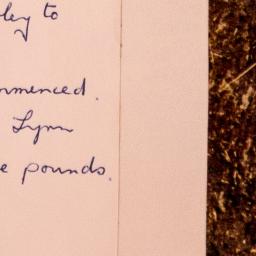 ley to
mmenced.
Lynn
e pounds.